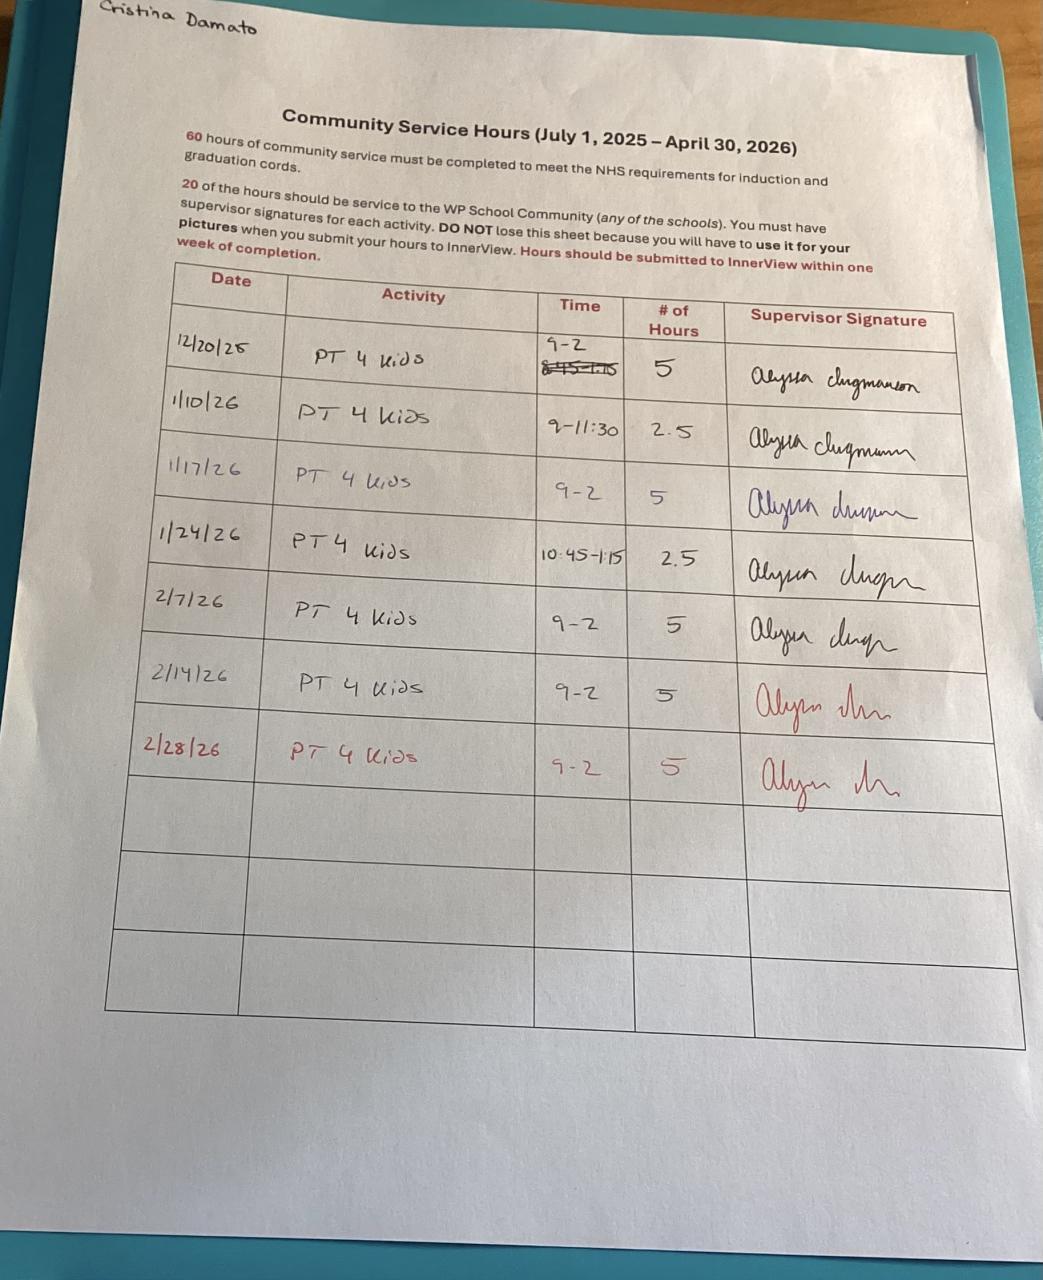 Cristina Damato
Community Service Hours (July 1, 2025 – April 30, 2026)
60 hours of community service must be completed to meet the NHS requirements for induction and
graduation cords.
20 of the hours should be service to the WP School Community (any of the schools). You must have
supervisor signatures for each activity. DO NOT lose this sheet because you will have to use it for your
pictures when you submit your hours to InnerView. Hours should be submitted to InnerView within one
week of completion.
Date Activity Time # of Hours Supervisor Signature
12/20/25 PT 4 Kids 9-2 8:45-1:15 5 Alyssa
1/10/26 PT 4 Kids 9-11:30 2.5 Alyssa
1/17/26 PT 4 Kids 9-2 5 Alyssa
1/24/26 PT 4 Kids 10:45-1:15 2.5 Alyssa
2/7/26 PT 4 Kids 9-2 5 Alyssa
2/14/26 PT 4 Kids 9-2 5
2/28/26 PT 4 Kids 9-2 5